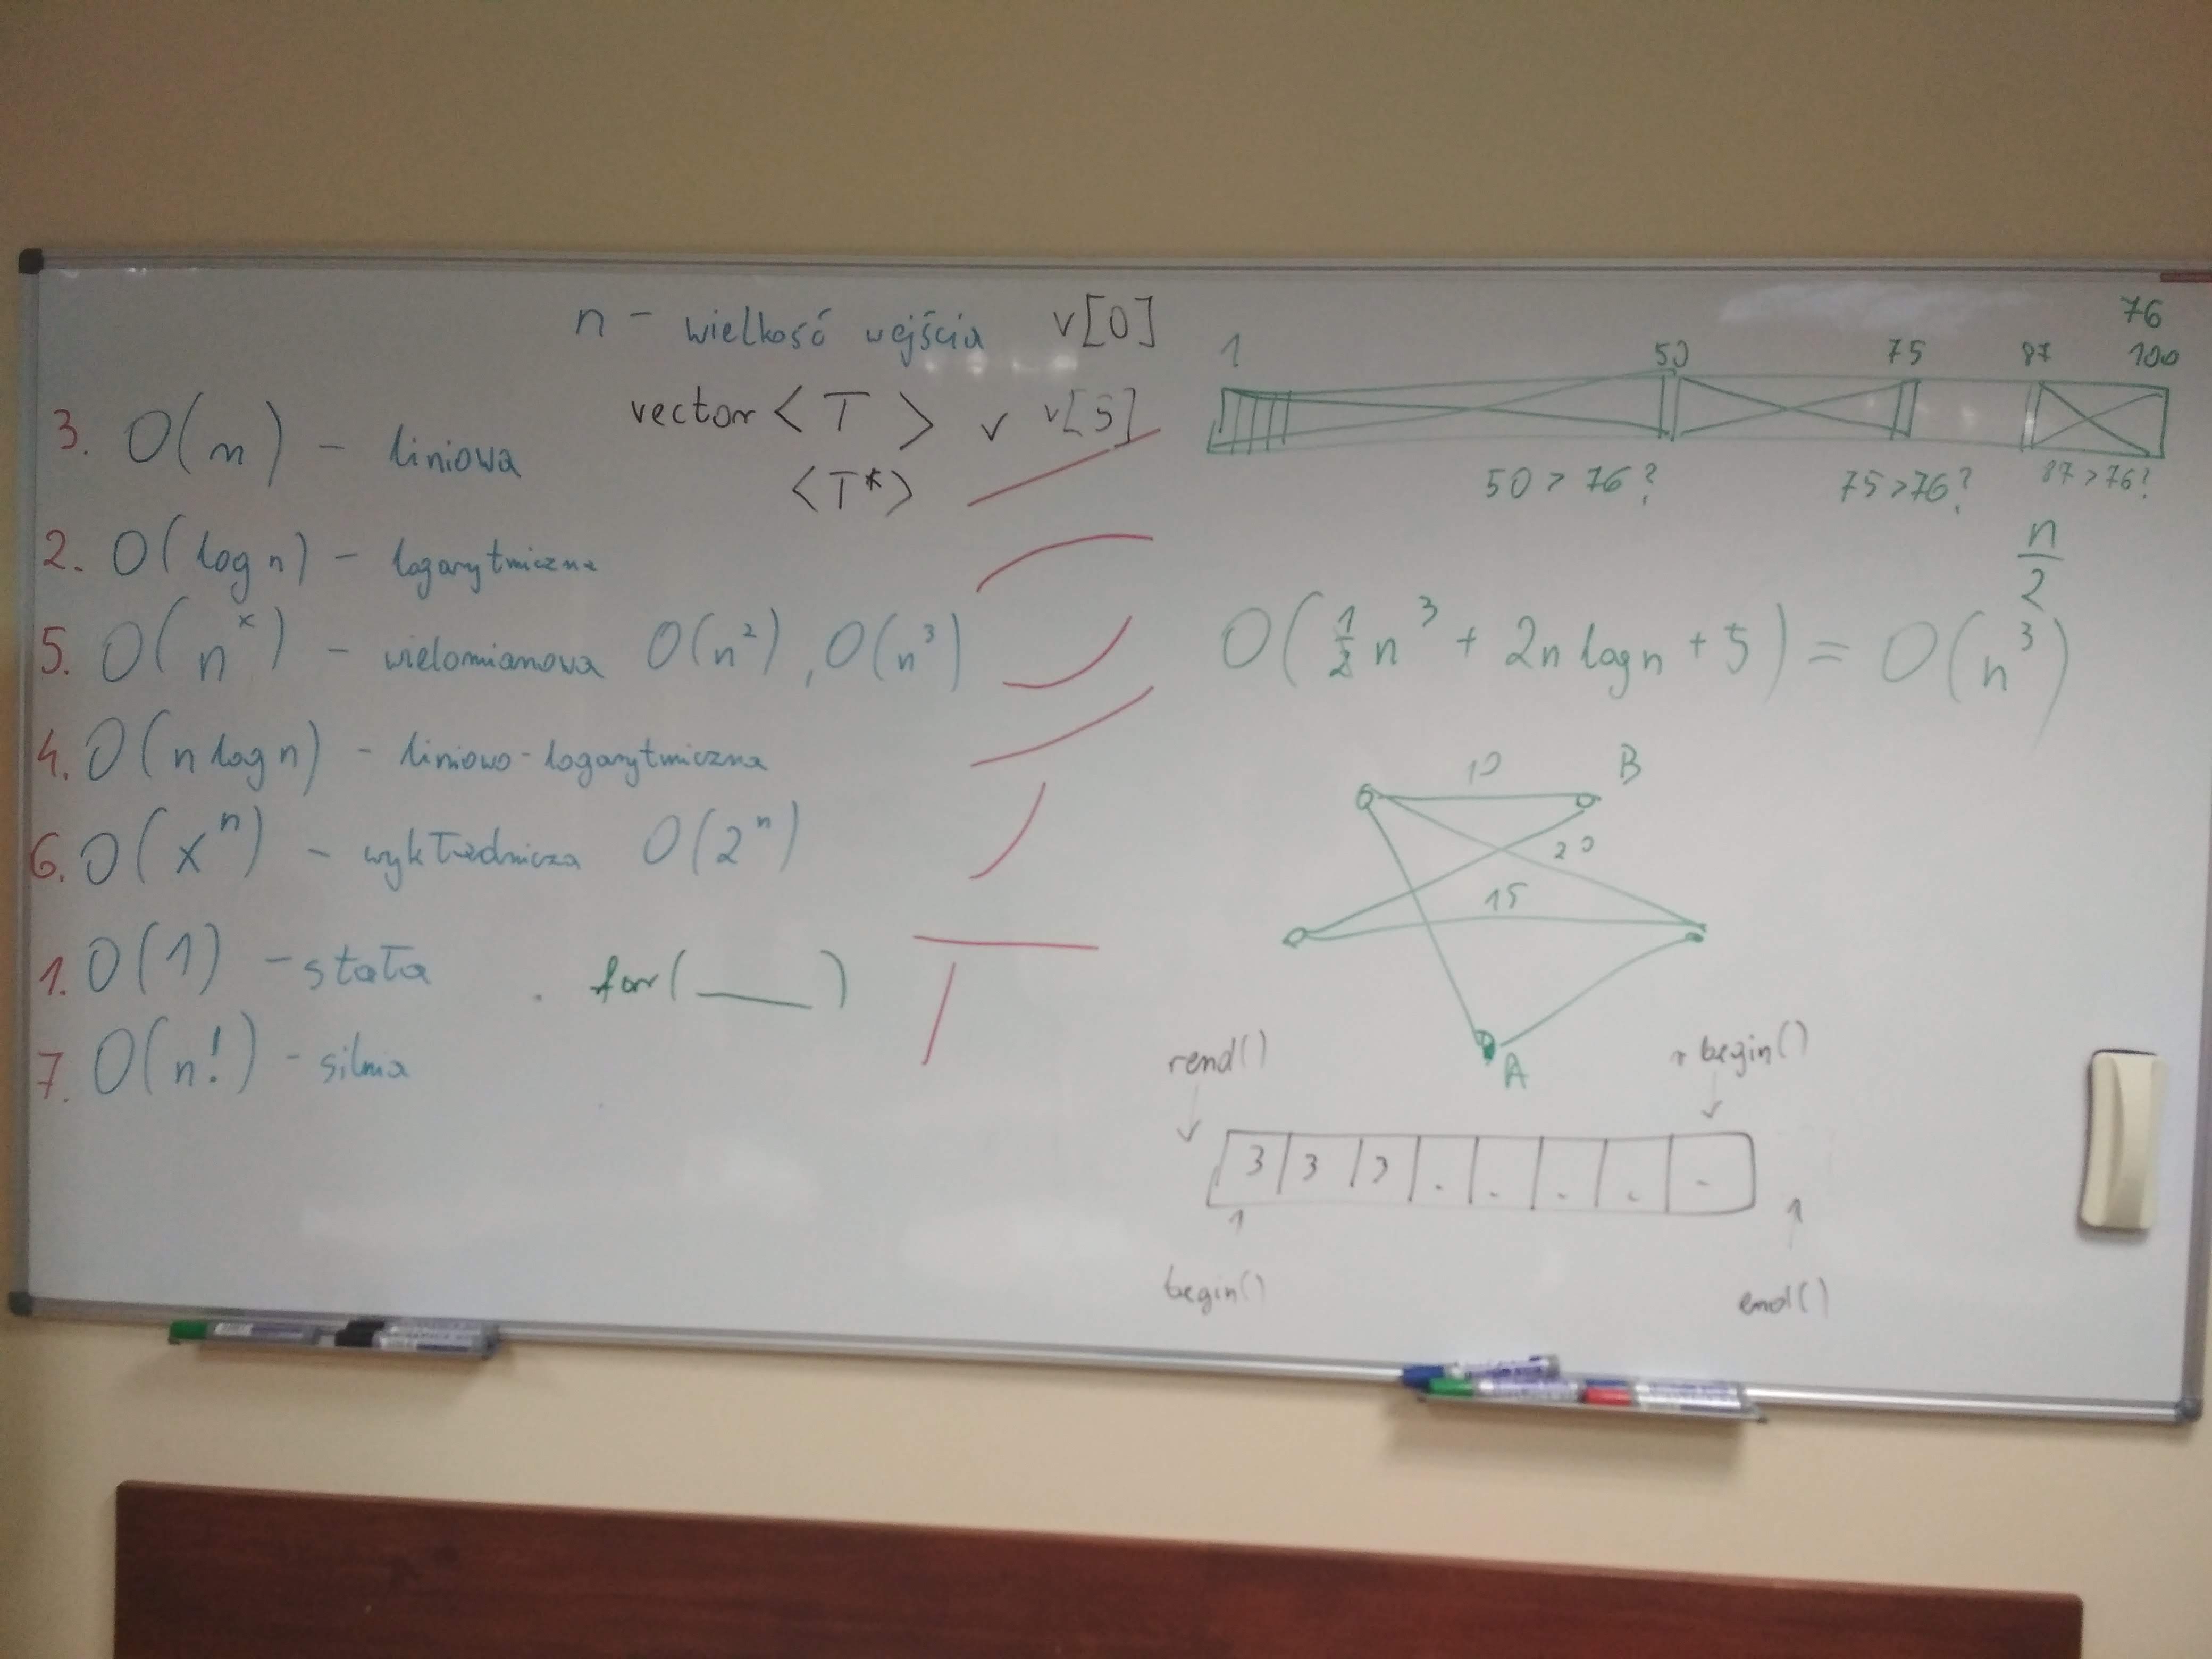 n - wielkość wejścia v[0]
vector <T> v v[5]
<T*>
3. O(n) - liniowa
2. O(log n) - logarytmiczna
5. O(n^x) - wielomianowa O(n²), O(n³)
4. O(n log n) - liniowo-logarytmiczna
6. O(x^n) - wykładnicza O(2^n)
1. O(1) - stała for(___)
7. O(n!) - silnia
76
1 50 75 87 100
50 > 76? 75 > 76? 87 > 76?
n/2
O(1/2 n³ + 2n log n + 5) = O(n³)
10 B
20
15
A
rend() rbegin()
3 3 3 . . . . .
begin() end()